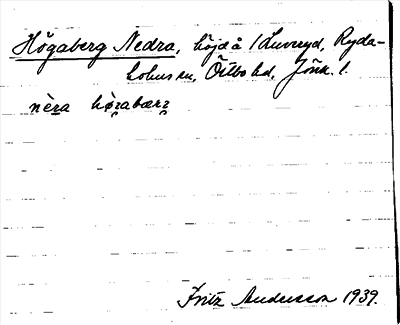 Högaberg Nedra, höjd å / Luvryd, Ryda-
holms sn, Östbo hd, Jönk. l.
nèra hø̀rabærʒ
Fritz Andersson 1939.